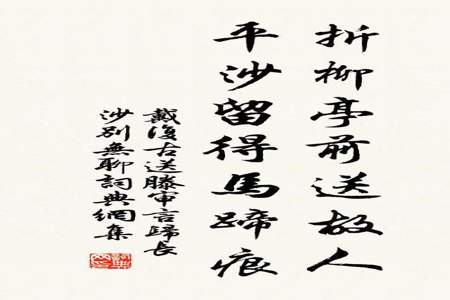 折柳亭前送故人
平沙留得馬蹄痕
戴復古送滕审言歸長
沙別無聊詞典網集